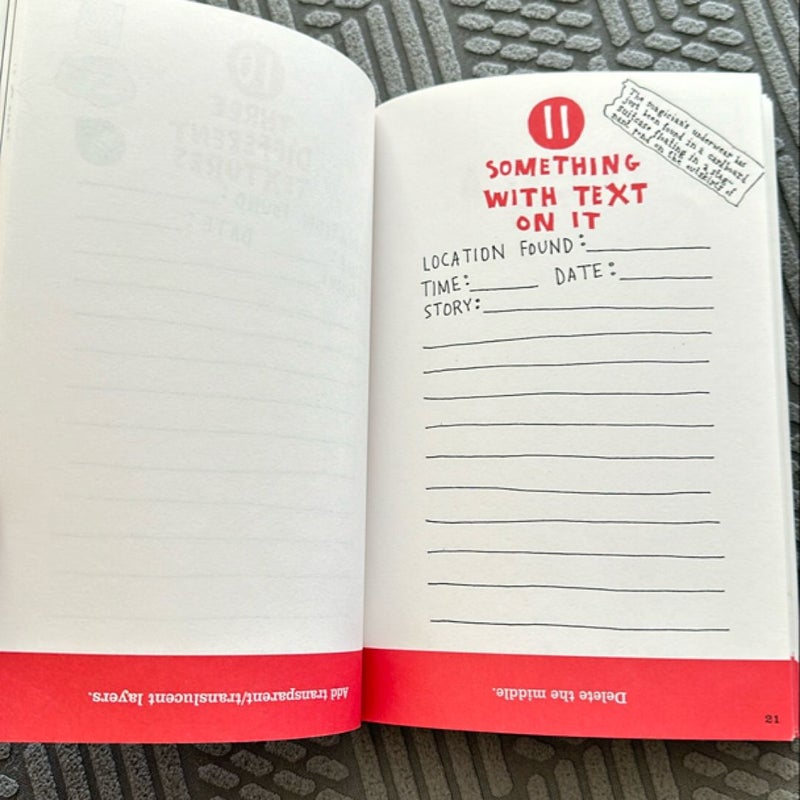 Add transparent/translucent layers.
11
SOMETHING
WITH TEXT
ON IT
The magician's underwear has
just been found in a cardboard
suitcase floating in a stag-
nant pond on the outskirts of
LOCATION FOUND:
TIME: DATE:
STORY:
Delete the middle.
21